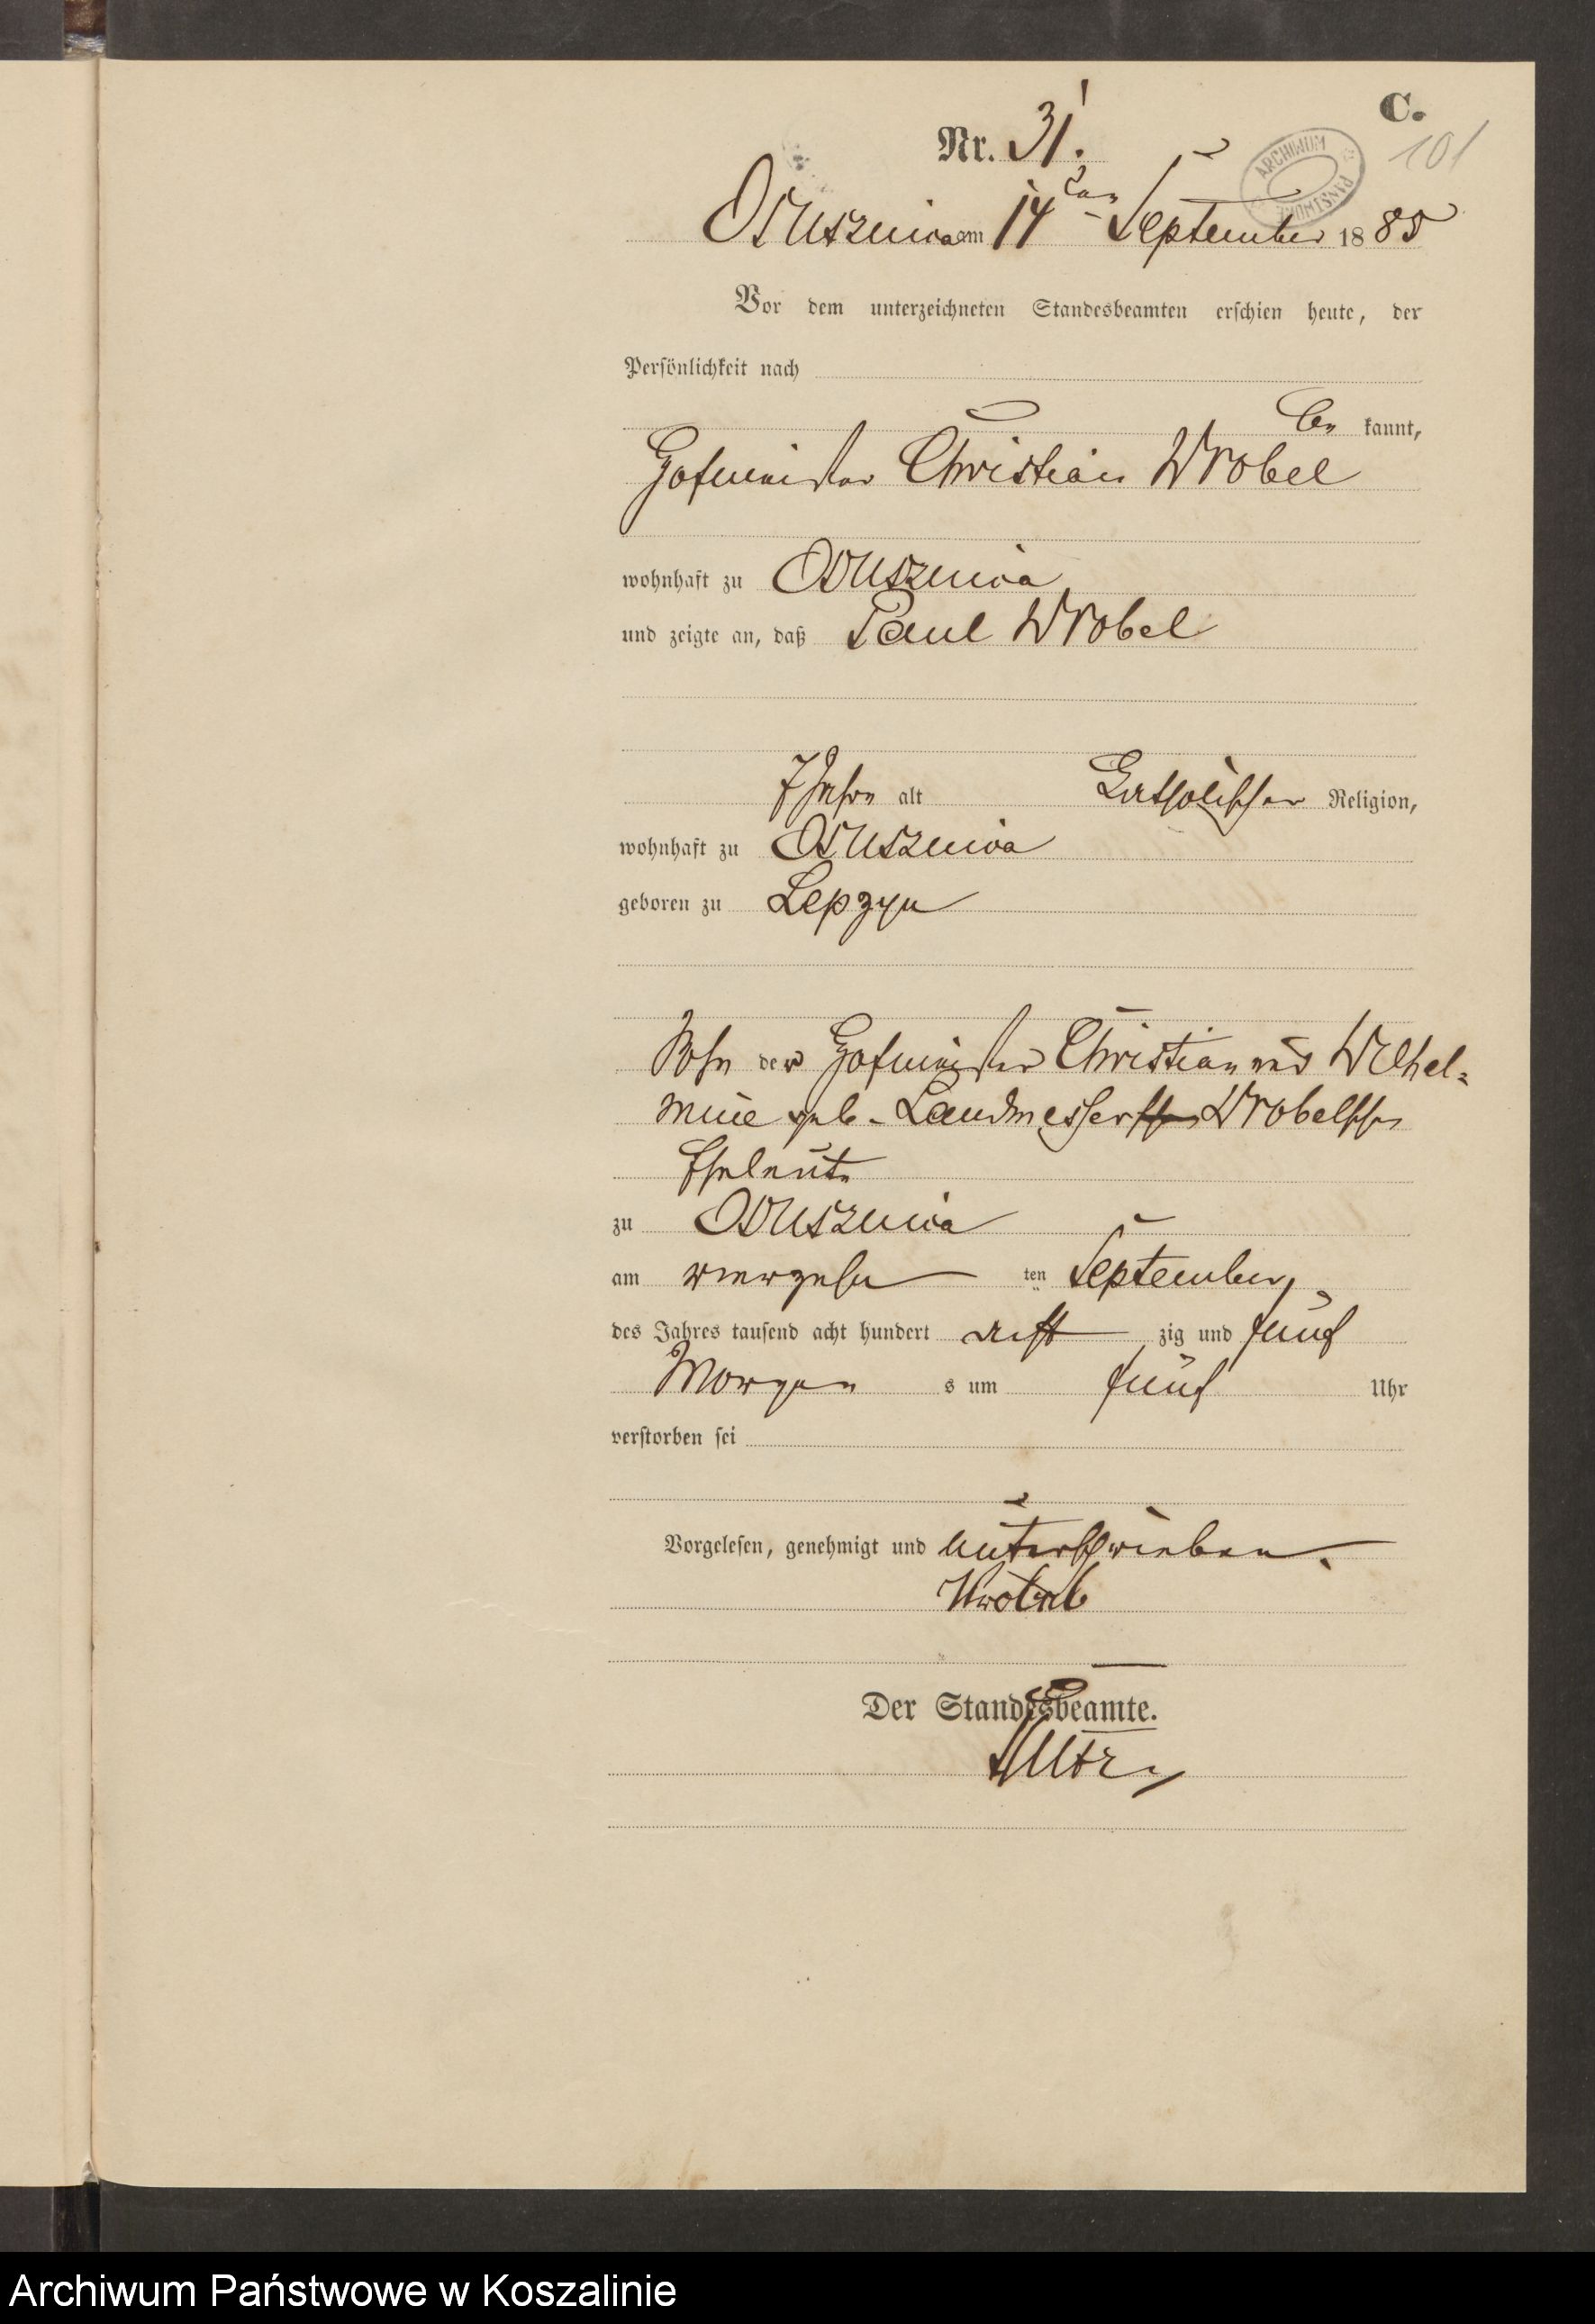 C.
Nr. 31.
101
ARCHIWUM PAŃSTWOWE
Ossuszniza am 14ten September 1885
Vor dem unterzeichneten Standesbeamten erschien heute, der
Persönlichkeit nach
be kannt,
Hofmeister Christian Wrobel
wohnhaft zu
und zeigte an, daß Paul Wrobel
7 Jahre alt katholischer Religion,
wohnhaft zu
geboren zu Lepzyn
Sohn der Hofmeister Christian und Wilhel-
mine geb. Landmesser Wrobelschen
Eheleute
zu
am vierzehn ten September
des Jahres tausend acht hundert acht zig und fünf
Morgen s um fünf Uhr
verstorben sei
Vorgelesen, genehmigt und unterschrieben.
Der Standesbeamte.
Archiwum Państwowe w Koszalinie